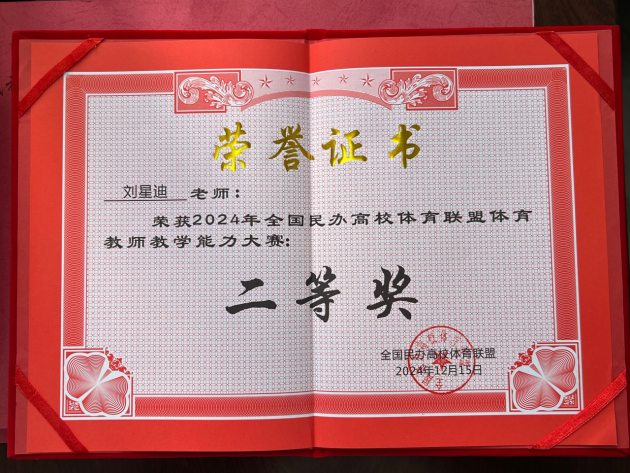 荣誉证书
刘星迪 老师：
荣获2024年全国民办高校体育联盟体育
教师教学能力大赛：
二等奖
全国民办高校体育联盟
2024年12月15日